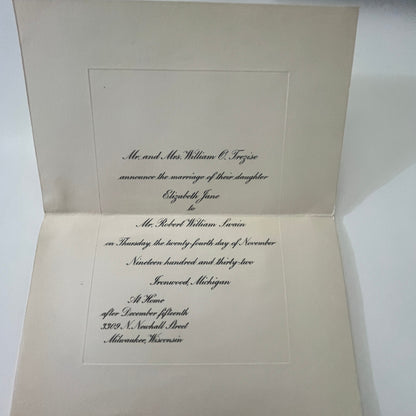 Mr. and Mrs. William O. Trezise
announce the marriage of their daughter
Elizabeth Jane
to
Mr. Robert William Swain
on Thursday, the twenty-fourth day of November
Nineteen hundred and thirty-two
Ironwood, Michigan
At Home
after December fifteenth
3309 N. Newhall Street
Milwaukee, Wisconsin